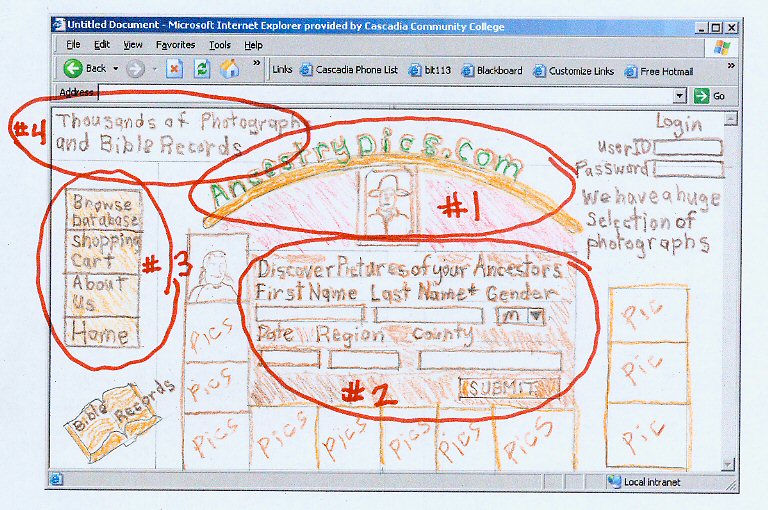 Untitled Document - Microsoft Internet Explorer provided by Cascadia Community College
File Edit View Favorites Tools Help
Back Links Cascadia Phone List bit113 Blackboard Customize Links Free Hotmail
Address Go
#4
Thousands of Photograph
and Bible Records
AncestryPics.com
#1
Login
UserID
Password
We have a huge
Selection of
photographs
Browse
Database
Shopping
Cart
About
Us
Home
#3
Discover Pictures of your Ancestors
First Name Last Name* Gender
m
Date Region County
SUBMIT
#2
Bible Records
Pics
Pics
Pics Pics Pics Pics Pics
Pic
Pic
Pic
Local intranet